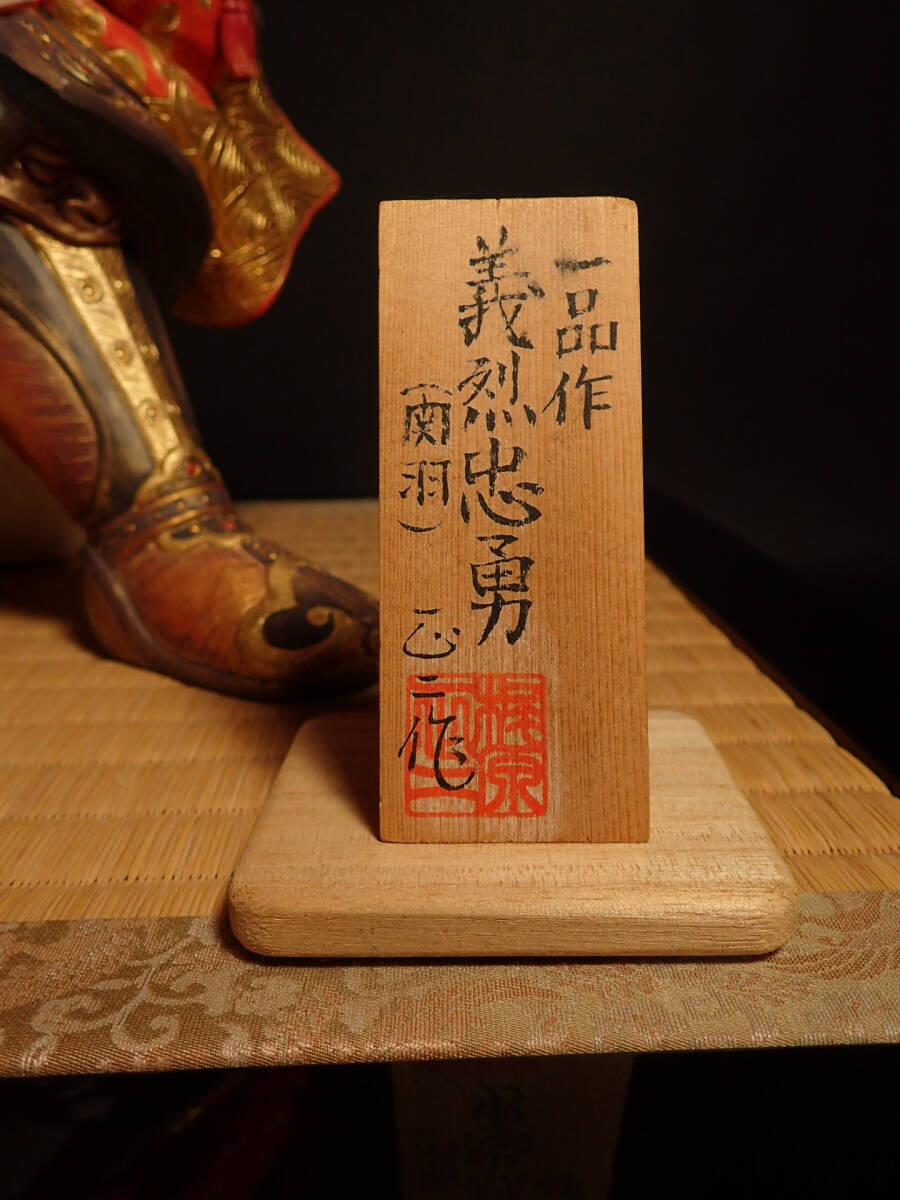 一品作
義烈忠勇
（関羽）
正二作